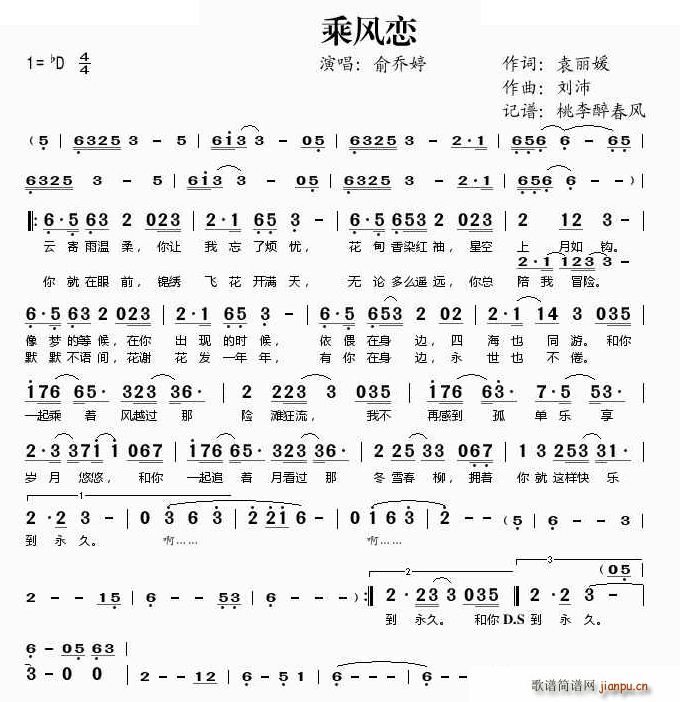 乘风恋
1=♭D 4/4 演唱：俞乔婷 作词：袁丽媛
作曲：刘沛
记谱：桃李醉春风
(5 | 6325 3 - 5 | 6i3 3 - 05 | 6325 3 - - | 2·1 | 656 6 - 65 |
6325 3 - 5 | 6i3 3 - 05 | 6325 3 - - | 2·1 | 656 6 - - ) |
‖: 6·5 63 2 023 | 2·1 65 3 - | 6·5 653 2·1 023 | 2 12 3 - |
云寄雨温柔，你让 我忘了烦忧， 花甸香染红袖，星空 上月如钩。
2·1 123 3 -
你就在眼前，锦绣 飞花开满天， 无论多么遥远，你总 陪我 冒险。
6·5 63 2 023 | 2·1 65 3 - | 6·5 63 2 023 | 2·1 14 3 035 |
像梦的等候，在你 出现的时候， 依偎在身边，四 海也同游。和你
默默不语间，花谢 花发一年年， 有你在身边，永 世也不倦。
i76 65· 323 36· | 2 223 3 035 | i76 63· 7·5 53· |
一起乘着 风越过那 险滩狂流， 我不 再感到孤单乐享
2·3 37i i 067 | i76 65· 323 36· | 2 25 33 067 | 1 3 253 31 |
岁月悠悠，和你 一起追着月看过那 冬雪春柳，拥着 你就这样快乐
1
2·2 3 - | 0 3 6 3 | 2 2i 6 - | 0 i 6 3 | 2 - - - | (5 - - - | 6 - - 3 |
到永久。 啊…… 啊……
2 (05 |
2 - - 15 | 6 - - - | 6 - - 53 | 6 - - - ) :‖ 2·23 3 035 ‖ 2·2 3 - |
到永久。 和你 D.S 到永久。
6 - 05 63
3 - 0 0 | 2 - - - | 2 - - 12 | 6 - - 5 | 6 - - - | 6 - - -
歌谱简谱网 jianpu.cn